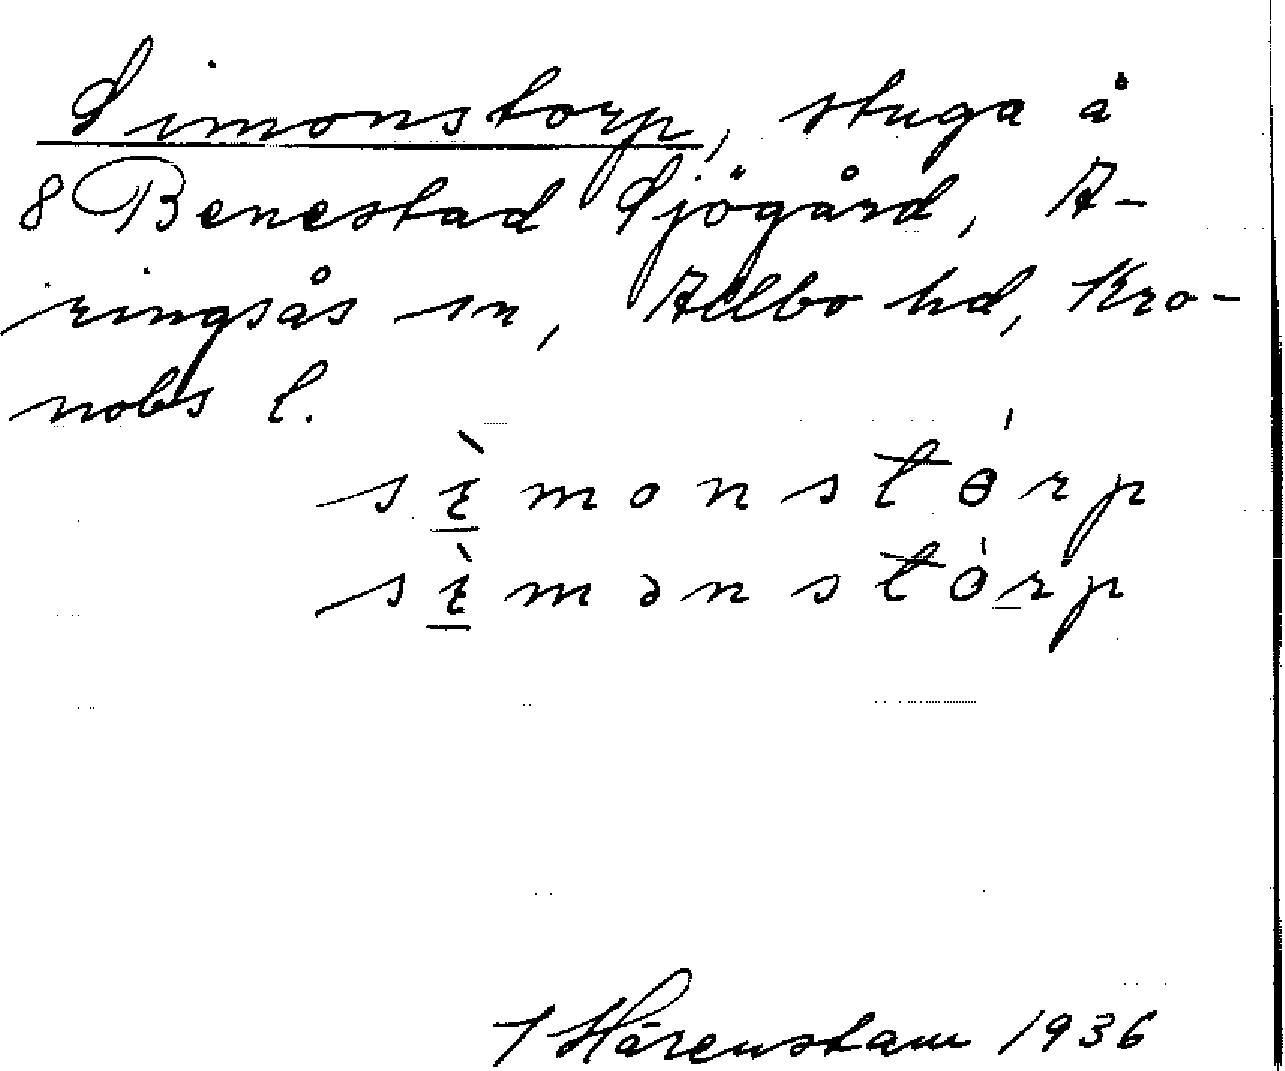 Simonstorp, stuga å
8 Benestad Sjögård, A-
ringsås sn, Allbo hd, Kro-
nobs l.
sìmonstɵ́rp
sìmənstɵ́rp
T Hårenstam 1936